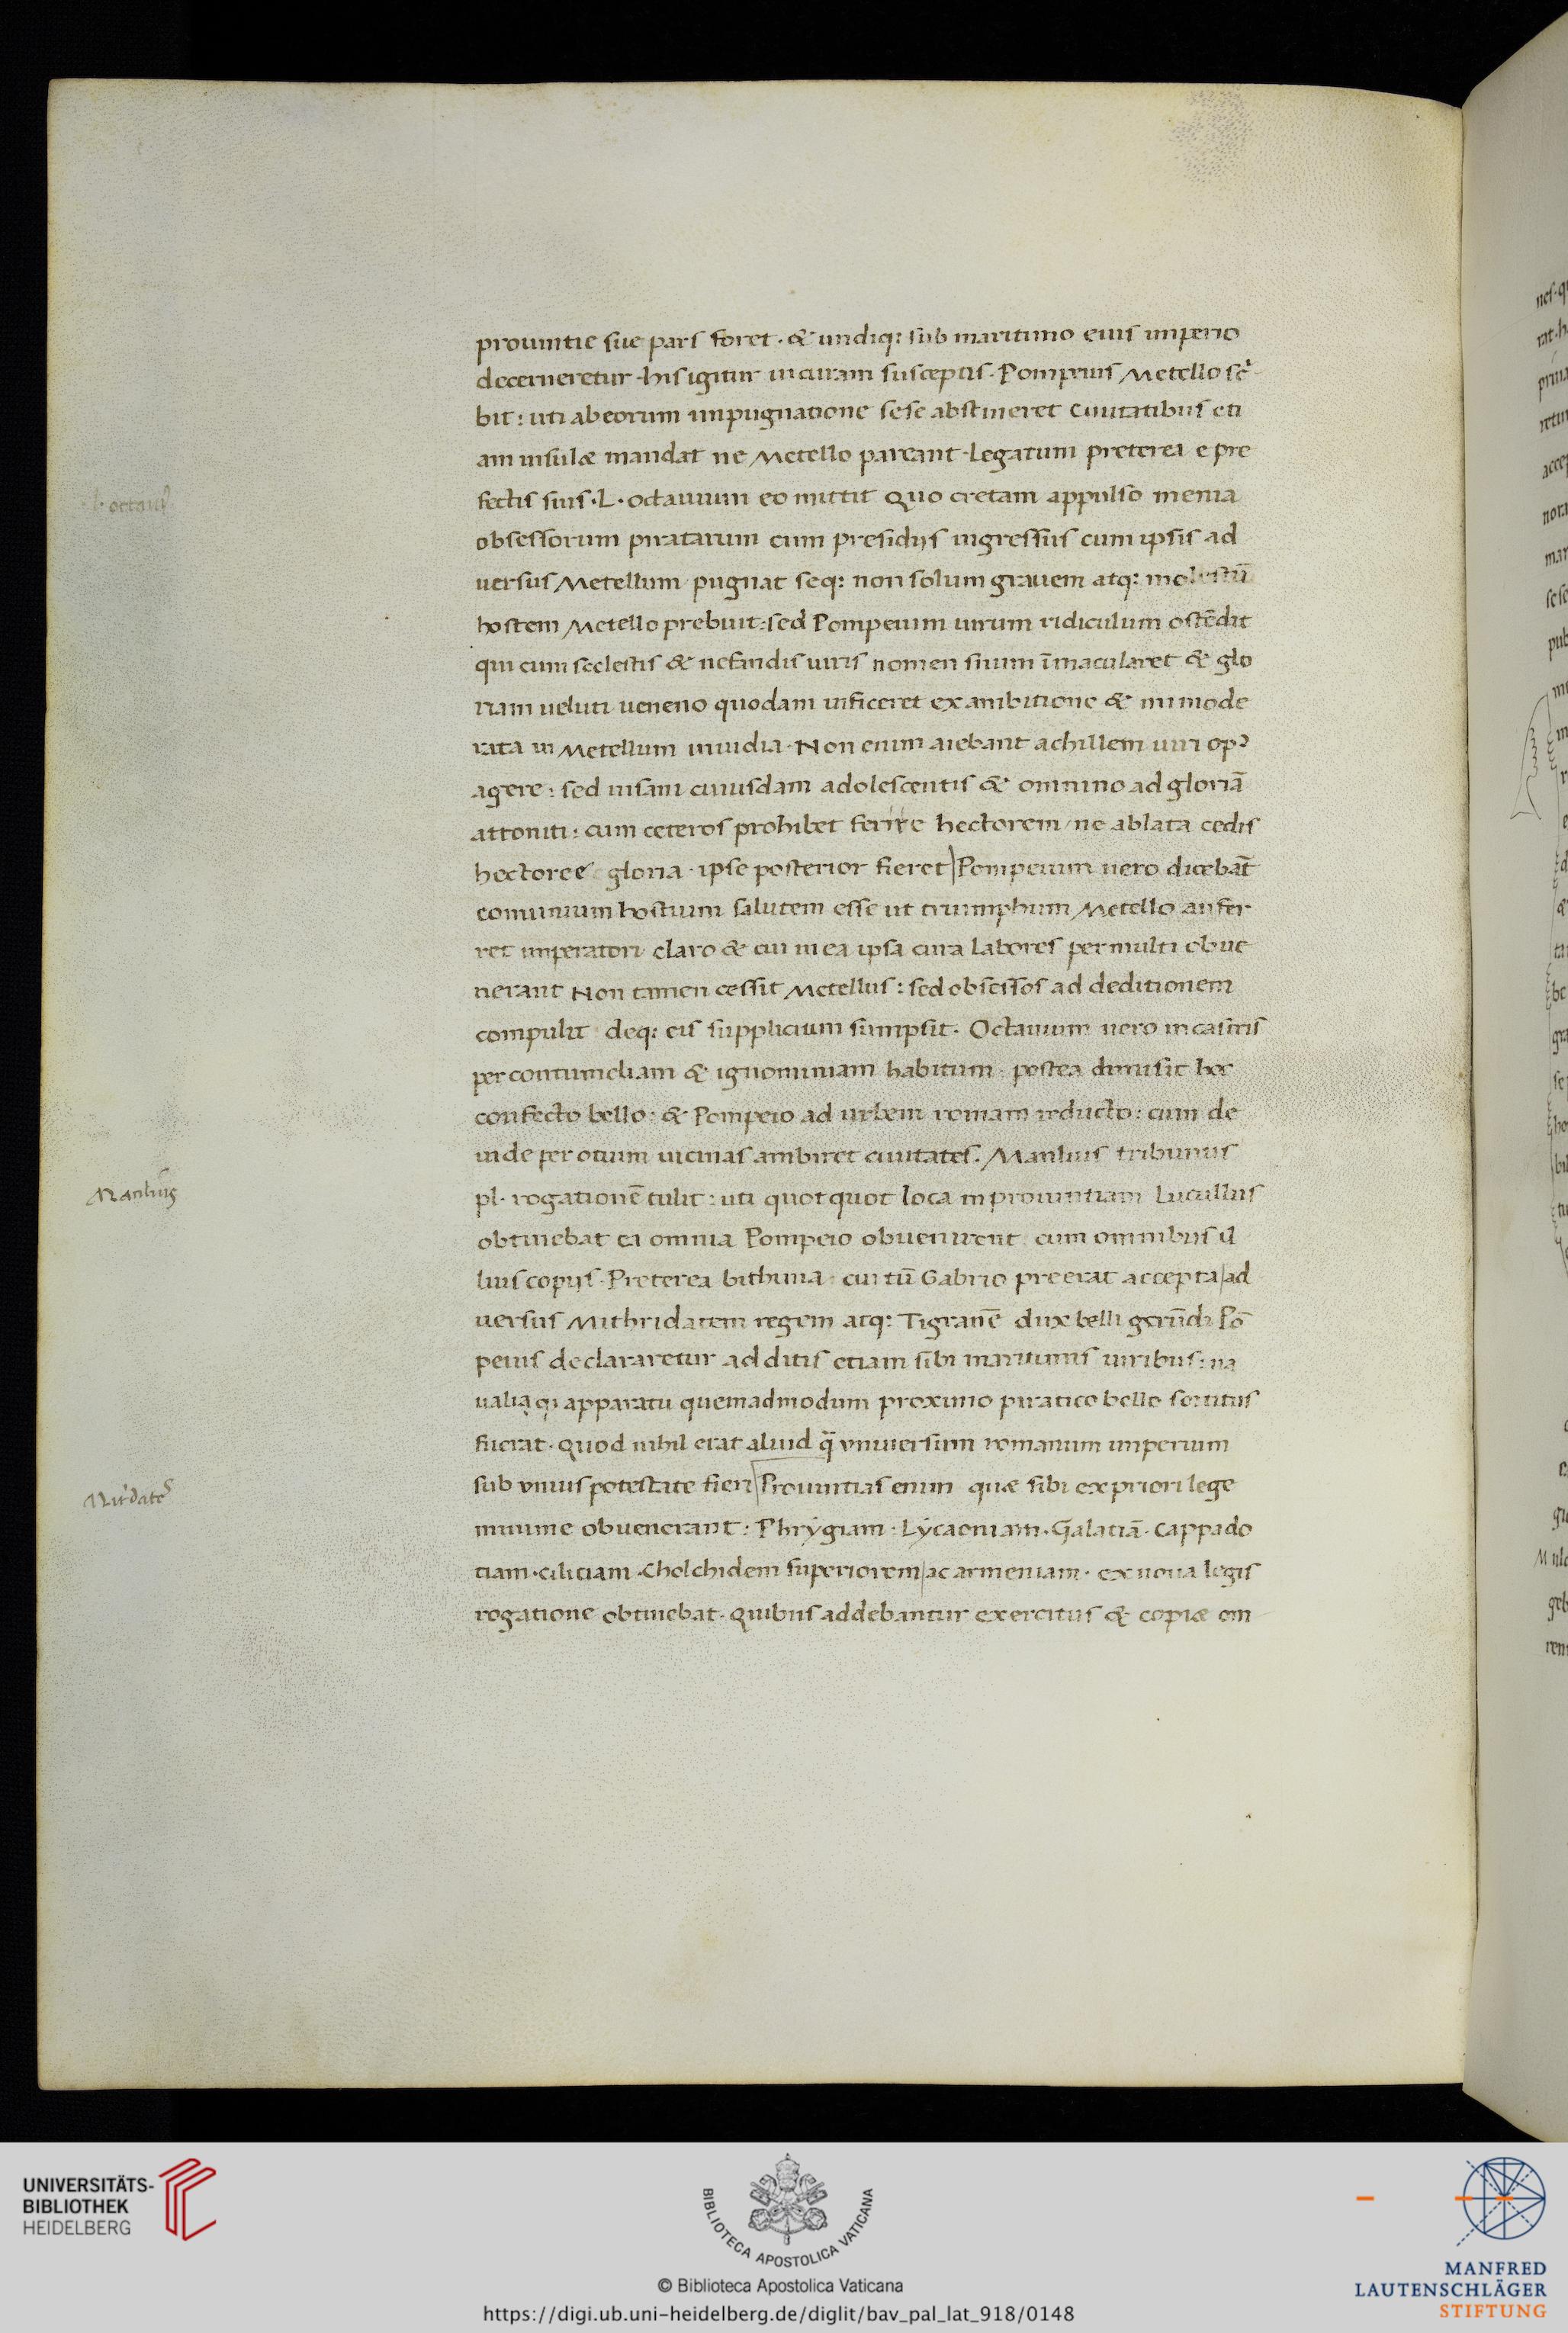 prouintie sue pars foret · & undiq: sub maritimo eius imperio
decerneretur · his igitur in curam susceptis · Pompeius Metello sc̃
bit : uti ab eorum impugnatione sese abstineret Ciuitatibus eti
am insulæ mandat ne Metello pareant · Legatum preterea e pre
fectis suis · L · octauium eo mittit Quo cretam appulso menia
obsessorum piratarum cum presidijs ingressus cum ipsis ad
uersus Metellum pugnat seq: non solum grauem atq: molestũ
hostem Metello prebuit : sed Pompeium uirum ridiculum ostẽdit
qui cum scelestis & nefandis uiris nomen suum ĩmacularet & glo
riam ueluti ueneno quodam inficeret ex ambitione & inmode
rata in Metellum inuidia · Non enim aiebant achillem uiri opꝰ
agere : sed insani cuiusdam adolescentis & omnino ad gloriã
attoniti : cum ceteros prohibet ferire hectorem / ne ablata cedis
hectoree gloria · ipse posterior fieret Pompeium uero dicebãt
comunium hostium salutem esse ut triumphum Metello aufer
ret imperatori claro & cui in ea ipsa cura labores permulti obue
nerant Non tamen cessit Metellus : sed obsessos ad deditionem
compulit deq: eis supplicium sumpsit · Octauium uero in castris
per contumeliam & ignominiam habitum · postea dimisit hoc
confecto bello : & Pompeio ad urbem romam reducto : cum de
inde per otium uicinas ambiret ciuitates · Manlius tribunus
pl · rogationẽ tulit : uti quotquot loca in prouintiam Lucullus
obtinebat ea omnia Pompeio obuenirent cum omnibus il
lius copijs · Preterea bithinia : cui tũ Gabrio preerat accepta ad
uersus Mithridatem regem atq: Tigranẽ dux belli gerũdi Põ
peius declararetur additis etiam sibi maritimis uiribus : na
ualiaq; apparatu quemadmodum proximo piratico bello sortitus
fuerat · quod nihil erat aliud q̃ vniuersum romanum imperium
sub vnius potestate fieri Prouintias enim quæ sibi ex priori lege
minime obuenerant : Phrýgiam · Lýcaoniam · Galatiã · Cappado
tiam · ciliciam · Cholchidem superiorem ac armeniam · ex noua legis
rogatione obtinebat · Quibus addebantur exercitus & copiæ om
l· octauꝰ
Manlius
UNIVERSITÄTS-
BIBLIOTHEK
HEIDELBERG
BIBLIOTECA APOSTOLICA VATICANA
© Biblioteca Apostolica Vaticana
https://digi.ub.uni-heidelberg.de/diglit/bav_pal_lat_918/0148
MANFRED
LAUTENSCHLÄGER
STIFTUNG